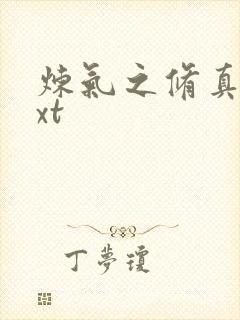 炼氣之脩真
xt
丁夢瓊